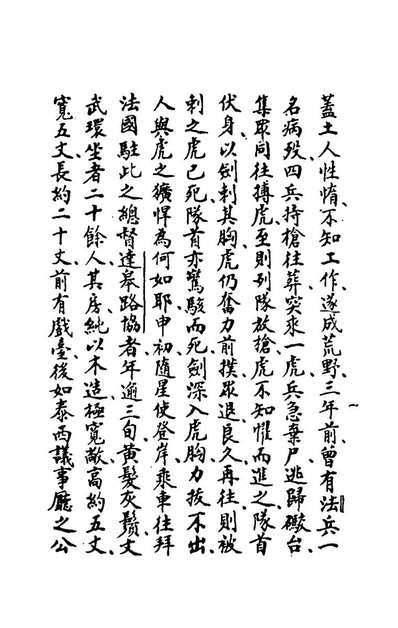 蓋土人性惰、不知工作、遂成荒野、三年前、曾有法兵一
名病歿、四兵持槍往葬、突來一虎、兵急棄尸逃歸礮台、
集眾同往搏虎、至則列隊放槍、虎不知懼而進之、隊首
伏身、以劍刺其胸、虎仍奮力前撲、眾退良久再往、則被
刺之虎已死、隊首亦驚駭而死、劍深入虎胸、力拔不出、
人與虎之獷悍為何如耶、申初、隨星使登岸乘車往拜
法國駐此之總督達皋路協者、年逾三旬、黃髮灰鬚、文
武環坐者二十餘人、其房純以木造、極寬敞、高約五丈、
寬五丈、長約二十丈、前有戲臺、後如泰西議事廳之公